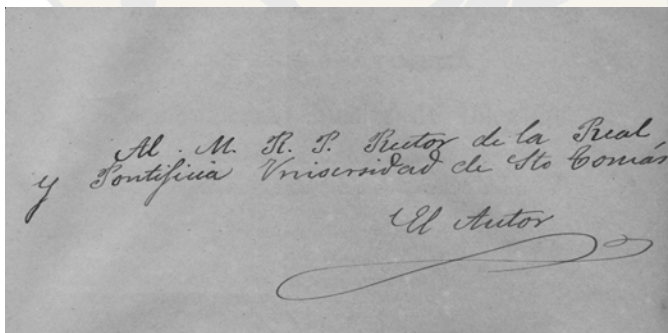 Al. M. R. P. Rector de la Real
y Pontificia Vniversidad de Sto Tomás
El Autor